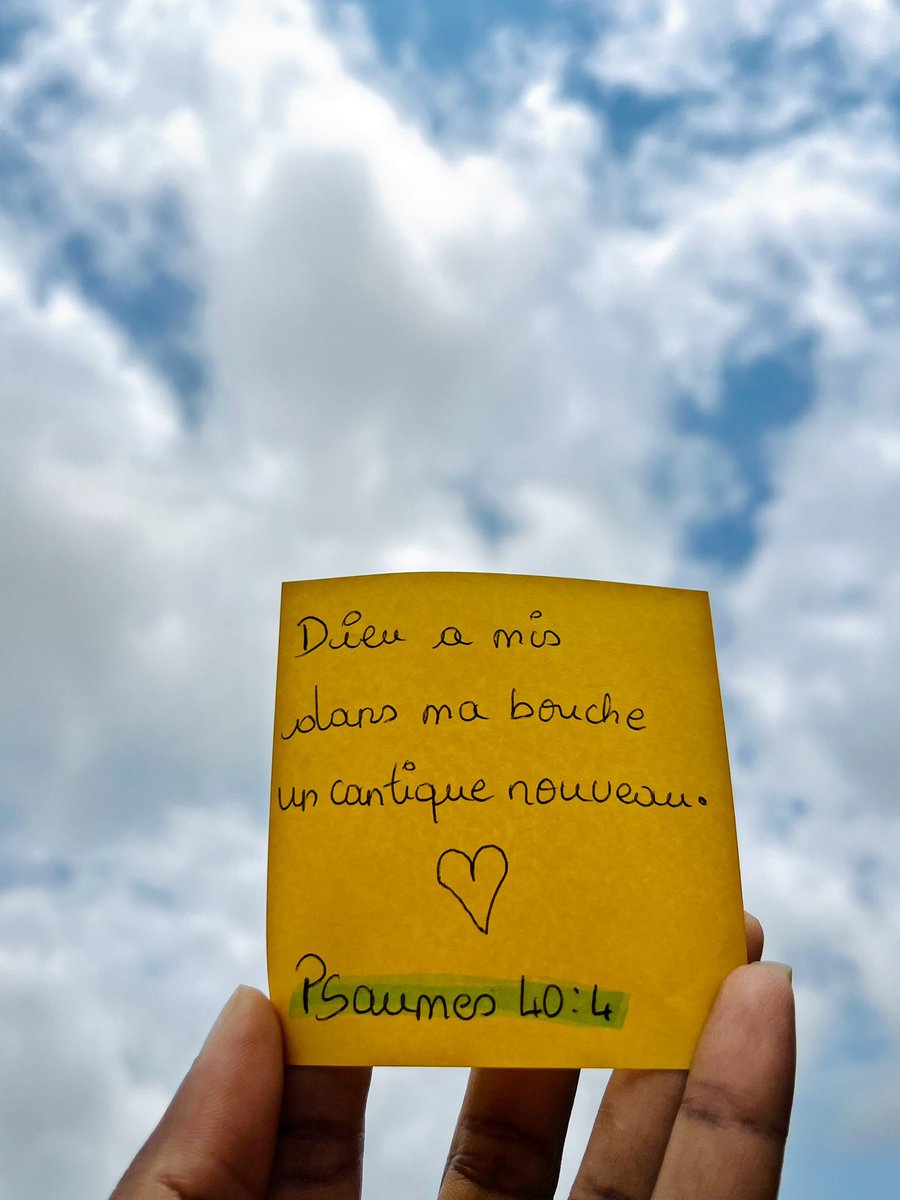 Dieu a mis
dans ma bouche
un cantique nouveau.
Psaumes 40:4